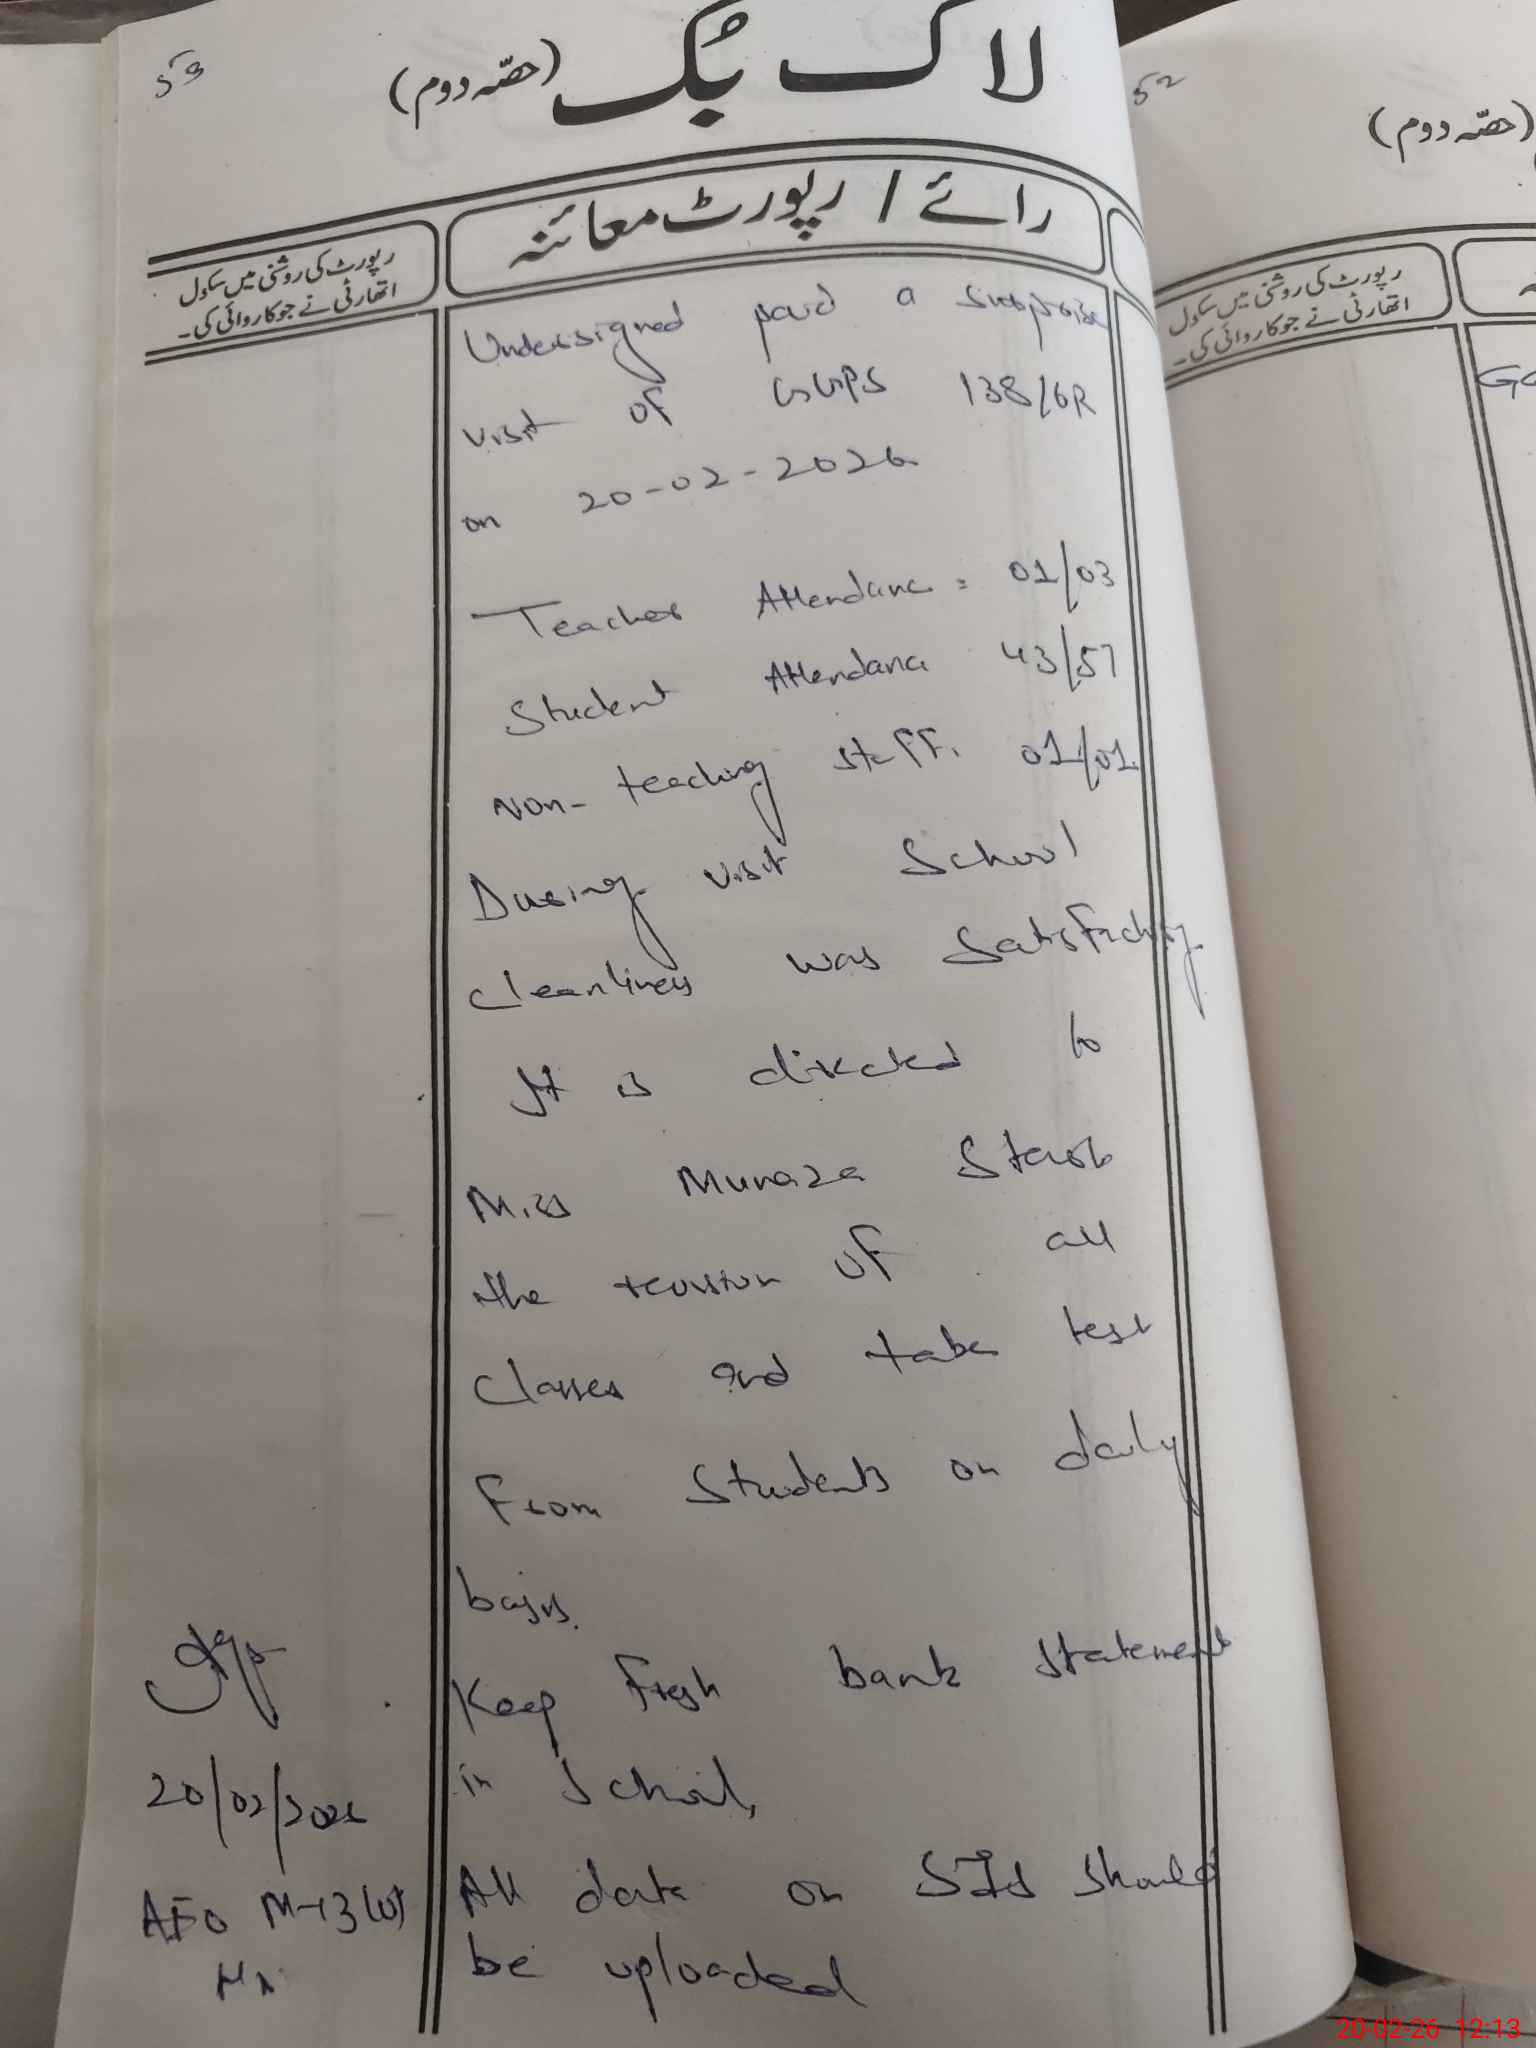 53
لاگ بُک (حصّہ دوم)
رائے / رپورٹ معائنہ
رپورٹ کی روشنی میں سکول
اتھارٹی نے جو کاروائی کی۔
Undersigned paid a surprise
visit of GGPS 138/6R
on 20-02-2026
Teacher Attendance = 01/03
Student Attendance 43/57
Non-teaching staff. 01/01
During visit School
cleanliness was satisfactory
It is directed to
Miss Munaza Start
the revision of all
classes and take test
From Students on daily
basis.
Keep Fresh bank statement
in School,
All data on SIS should
be uploaded
20/02/2026
AEO M-13(W)
52
(حصّہ دوم)
رپورٹ کی روشنی میں سکول
اتھارٹی نے جو کاروائی کی۔
20-02-26 12:13